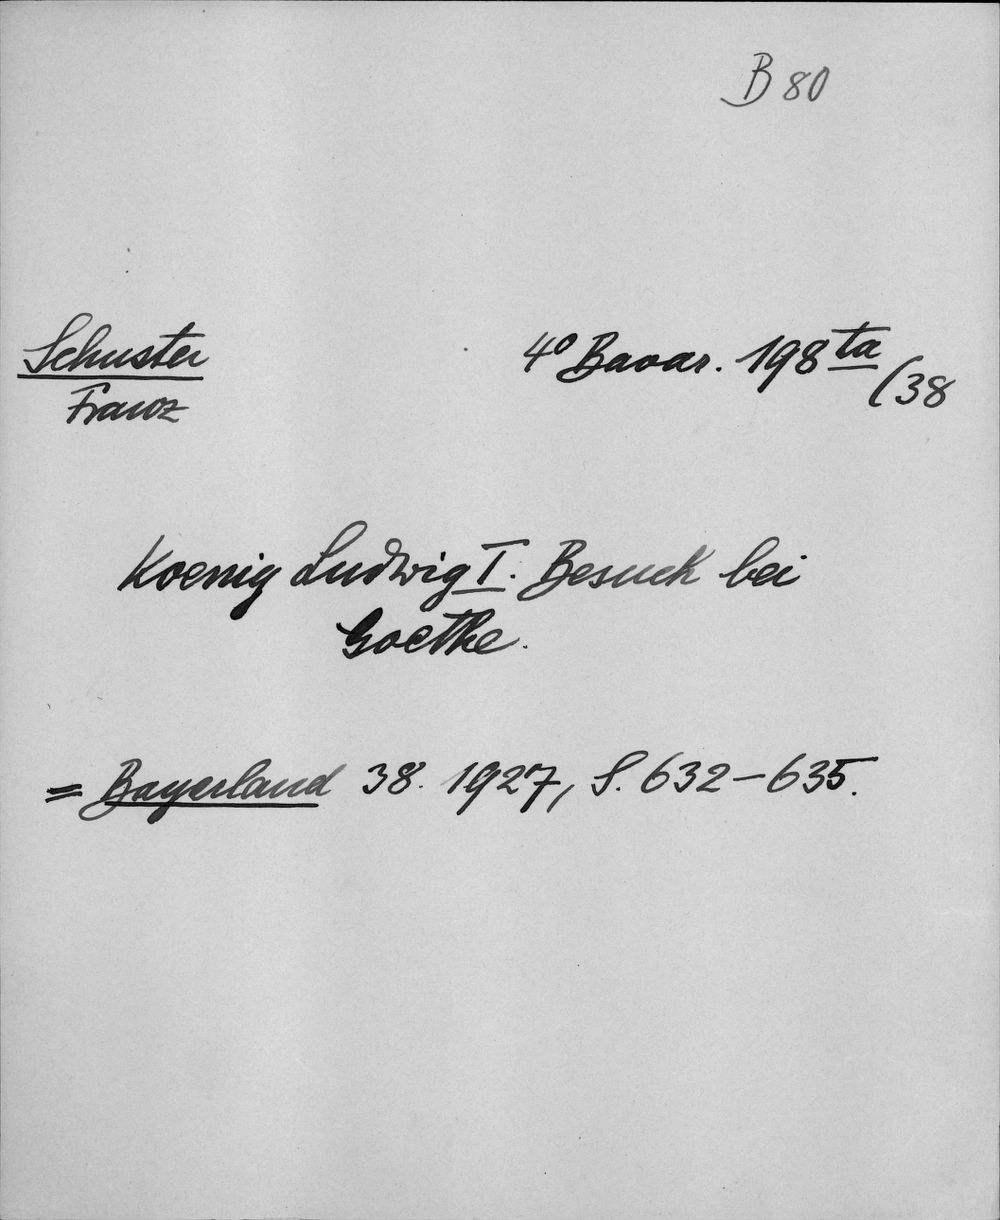 B 80
Schuster
Franz
4° Bavar. 198 ta
(38
Koenig Ludwig I. Besuch bei
Goethe.
= Bayerland 38. 1927, S. 632-635.